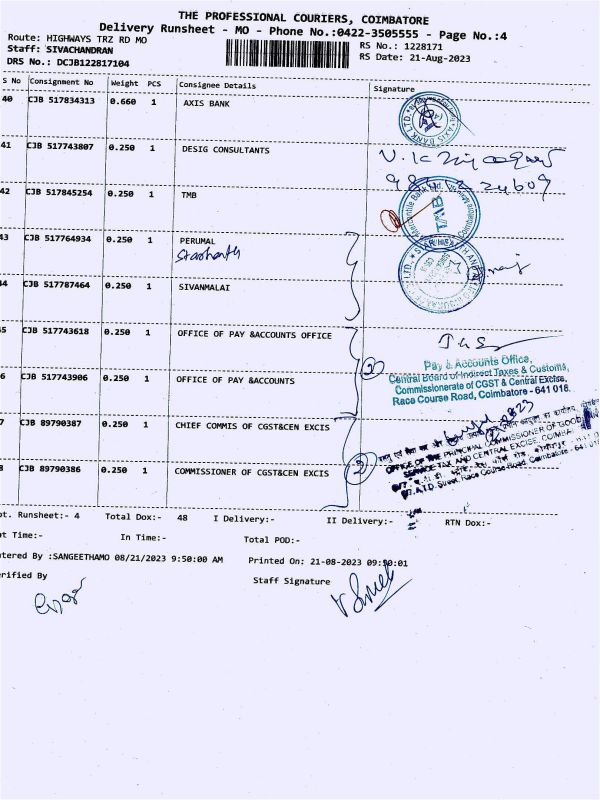 THE PROFESSIONAL COURIERS, COIMBATORE
Delivery Runsheet - MO - Phone No.:0422-3505555 - Page No.:4
Route: HIGHWAYS TRZ RD MO
RS No.: 1228171
Staff: SIVACHANDRAN
RS Date: 21-Aug-2023
DRS No.: DCJB122817104
S No Consignment No Weight PCS Consignee Details Signature
40 CJB 517834313 0.660 1 AXIS BANK
41 CJB 517743807 0.250 1 DESIG CONSULTANTS
42 CJB 517845254 0.250 1 TMB
TMB
43 CJB 517764934 0.250 1 PERUMAL
44 CJB 517787464 0.250 1 SIVANMALAI
5 CJB 517743618 0.250 1 OFFICE OF PAY &ACCOUNTS OFFICE
Pay & Accounts Office,
Central Board of Indirect Taxes & Customs,
Commissionerate of CGST & Central Excise,
Race Course Road, Coimbatore - 641 018.
6 CJB 517743906 0.250 1 OFFICE OF PAY &ACCOUNTS
2
7 CJB 89790387 0.250 1 CHIEF COMMIS OF CGST&CEN EXCIS
OFFICE OF THE PRINCIPAL COMMISSIONER OF GOODS
SERVICE TAX AND CENTRAL EXCISE, COIMBA
6/7, A.T.D. Street, Race Course Road, Coimbatore - 641 018
8 CJB 89790386 0.250 1 COMMISSIONER OF CGST&CEN EXCIS
2
ot. Runsheet:- 4 Total Dox:- 48 I Delivery:- II Delivery:- RTN Dox:-
ut Time:- In Time:- Total POD:-
ntered By :SANGEETHAMO 08/21/2023 9:50:00 AM Printed On: 21-08-2023 09:50:01
erified By Staff Signature